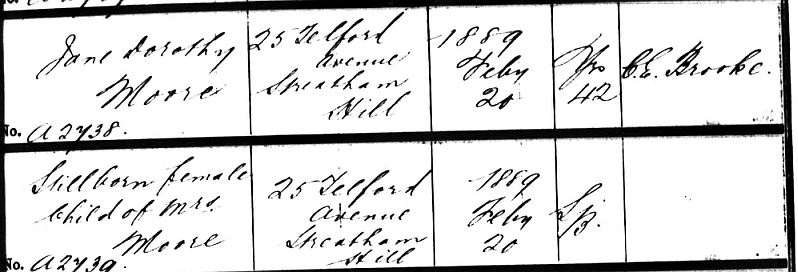 Jane Dorothy
Moore
No. A2738.
25 Telford
Avenue
Streatham
Hill
1889
Feby
20
Yrs
42
C.E. Brooke.
Stillborn female
Child of Mrs.
Moore
No. A2739.
25 Telford
Avenue
Streatham
Hill
1889
Feby
20